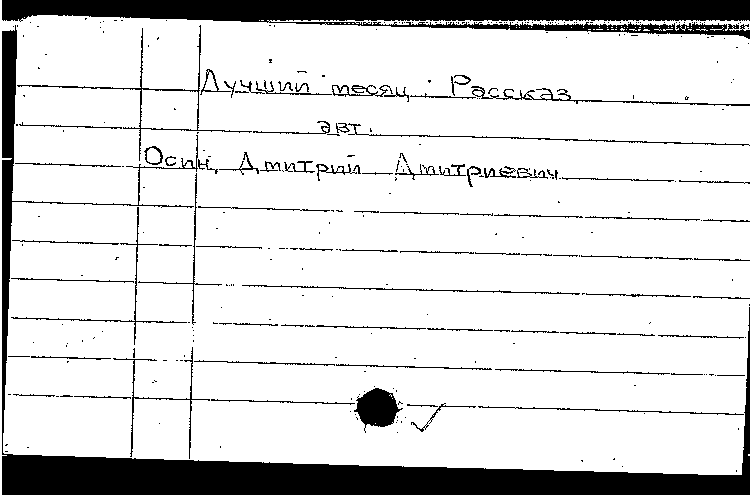 Лучший месяц : Рассказ.
авт.
Осин, Дмитрий Дмитриевич